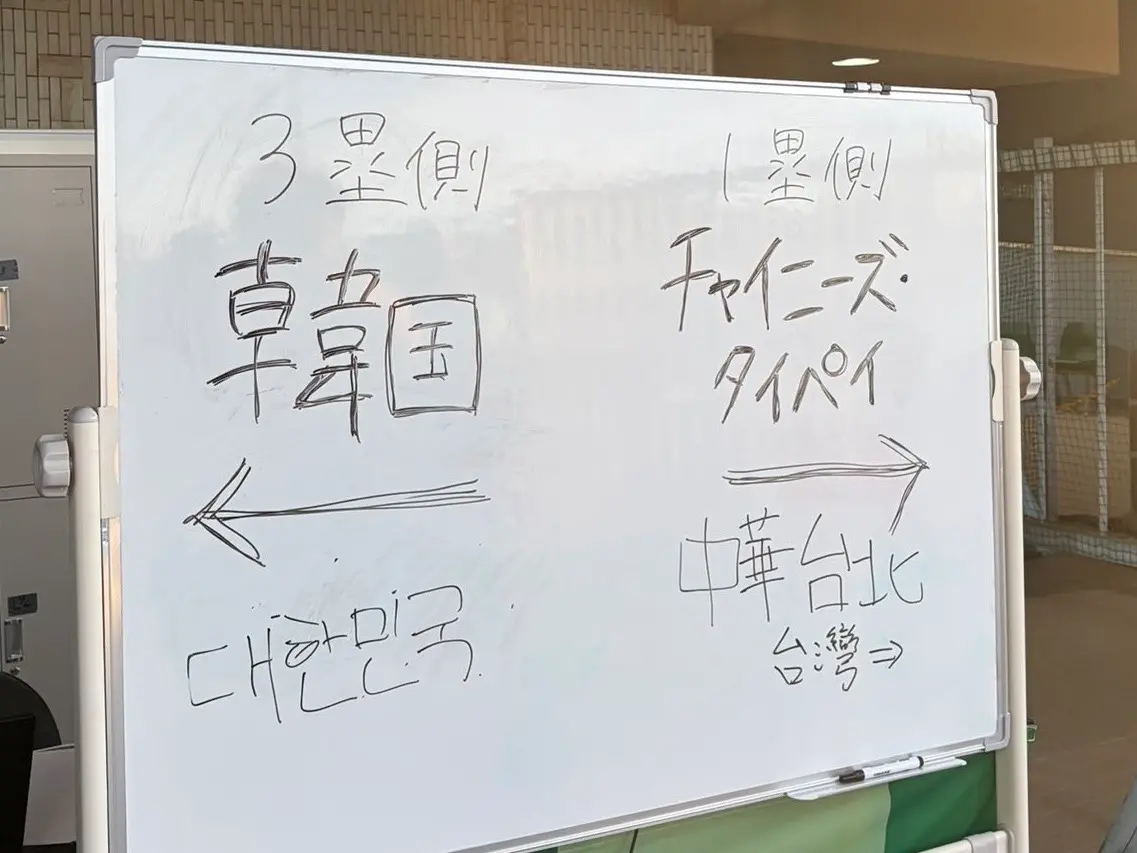 3塁側
韓国
←
대한민국
1塁側
チャイニーズ・
タイペイ
→
中華台北
台灣⇒